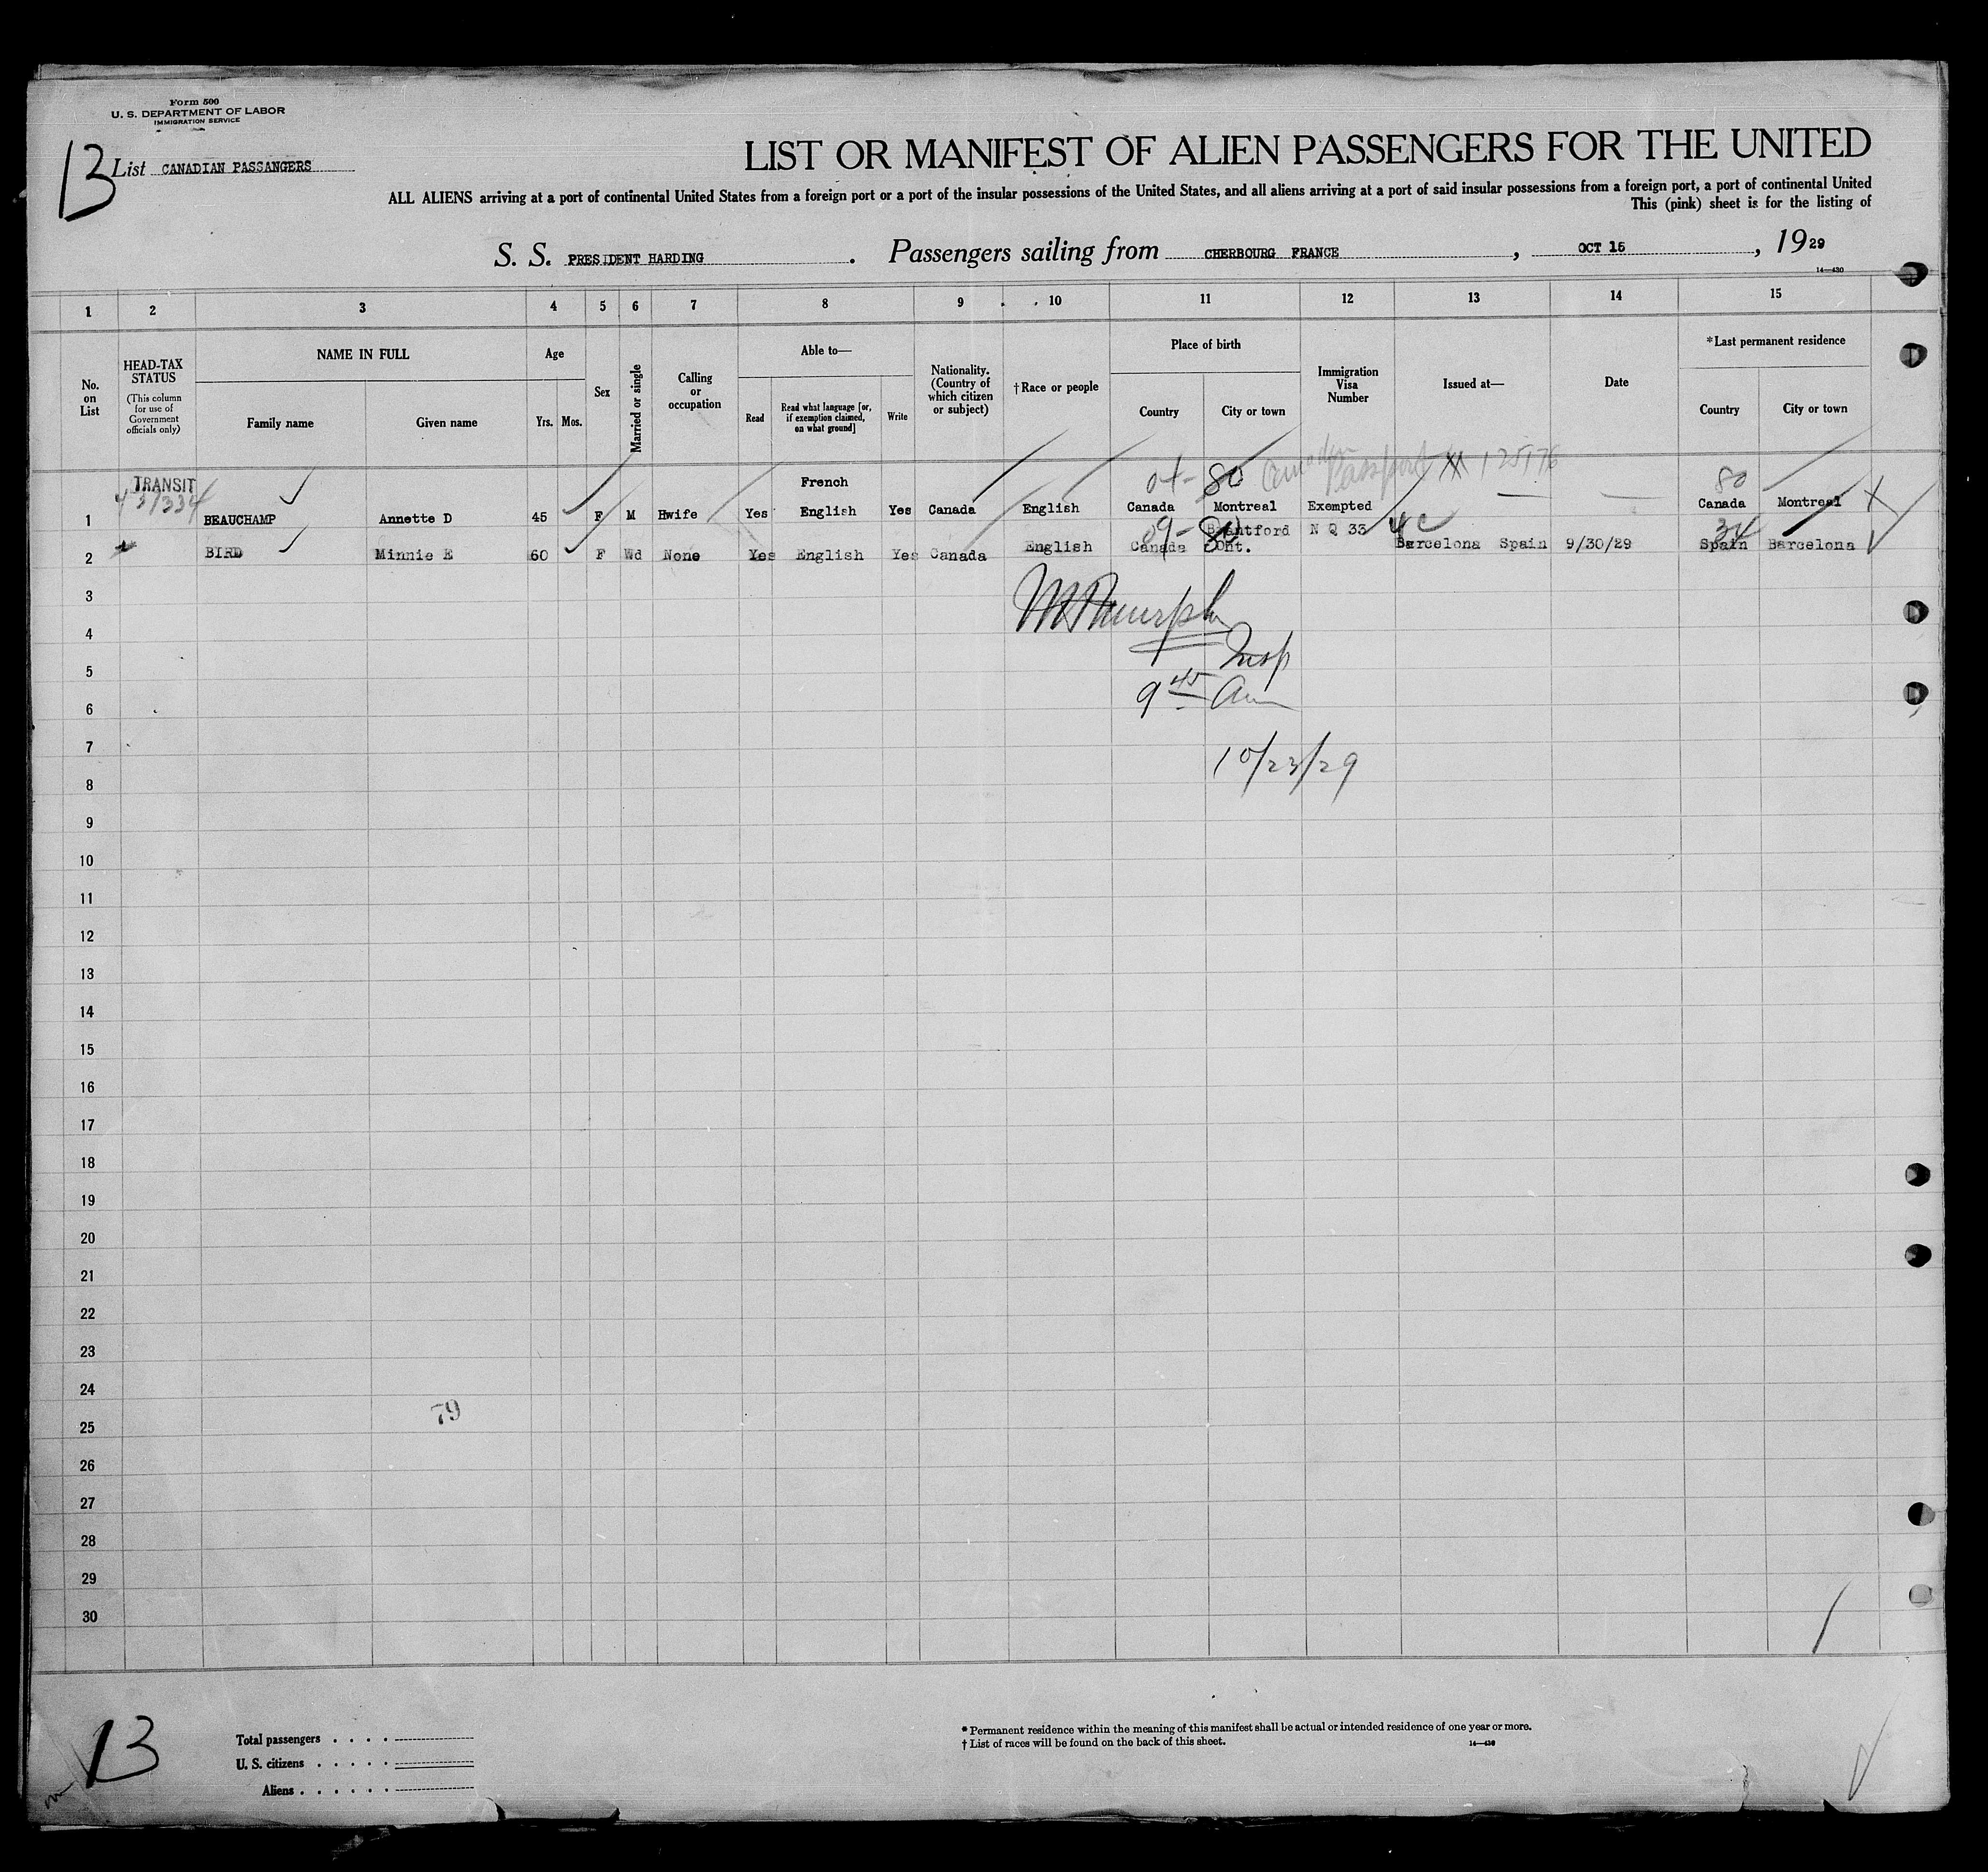 Form 500
U. S. DEPARTMENT OF LABOR
IMMIGRATION SERVICE
13
List CANADIAN PASSANGERS
LIST OR MANIFEST OF ALIEN PASSENGERS FOR THE UNITED
ALL ALIENS arriving at a port of continental United States from a foreign port or a port of the insular possessions of the United States, and all aliens arriving at a port of said insular possessions from a foreign port, a port of continental United
This (pink) sheet is for the listing of
S. S. PRESIDENT HARDING . Passengers sailing from CHERBOURG FRANCE , OCT 15 , 19 29
14—430
1 2 3 4 5 6 7 8 9 10 11 12 13 14 15
No. on List
HEAD-TAX STATUS
(This column for use of Government officials only)
NAME IN FULL
Family name Given name
Age
Yrs. Mos.
Sex
Married or single
Calling or occupation
Able to—
Read
Read what language [or, if exemption claimed, on what ground]
Write
Nationality. (Country of which citizen or subject)
†Race or people
Place of birth
Country City or town
Immigration Visa Number
Issued at—
Date
*Last permanent residence
Country City or town
TRANSIT
04- 80 Canadian Passport 125176 80
French
1 BEAUCHAMP Annette D 45 F M Hwife Yes English Yes Canada English Canada Montreal Exempted Canada Montreal X
09- 80 4c 34
2 BIRD Minnie E 60 F Wd None Yes English Yes Canada English Canada Brantford Ont. N Q 33 Barcelona Spain 9/30/29 Spain Barcelona
3
4
Insp
5
9 45 am
6
7
10/23/29
8
9
10
11
12
13
14
15
16
17
18
19
20
21
22
23
24
79
25
26
27
28
29
30
13
Total passengers . . . .
U. S. citizens . . . . .
Aliens . . . . . .
* Permanent residence within the meaning of this manifest shall be actual or intended residence of one year or more.
† List of races will be found on the back of this sheet.
14—430